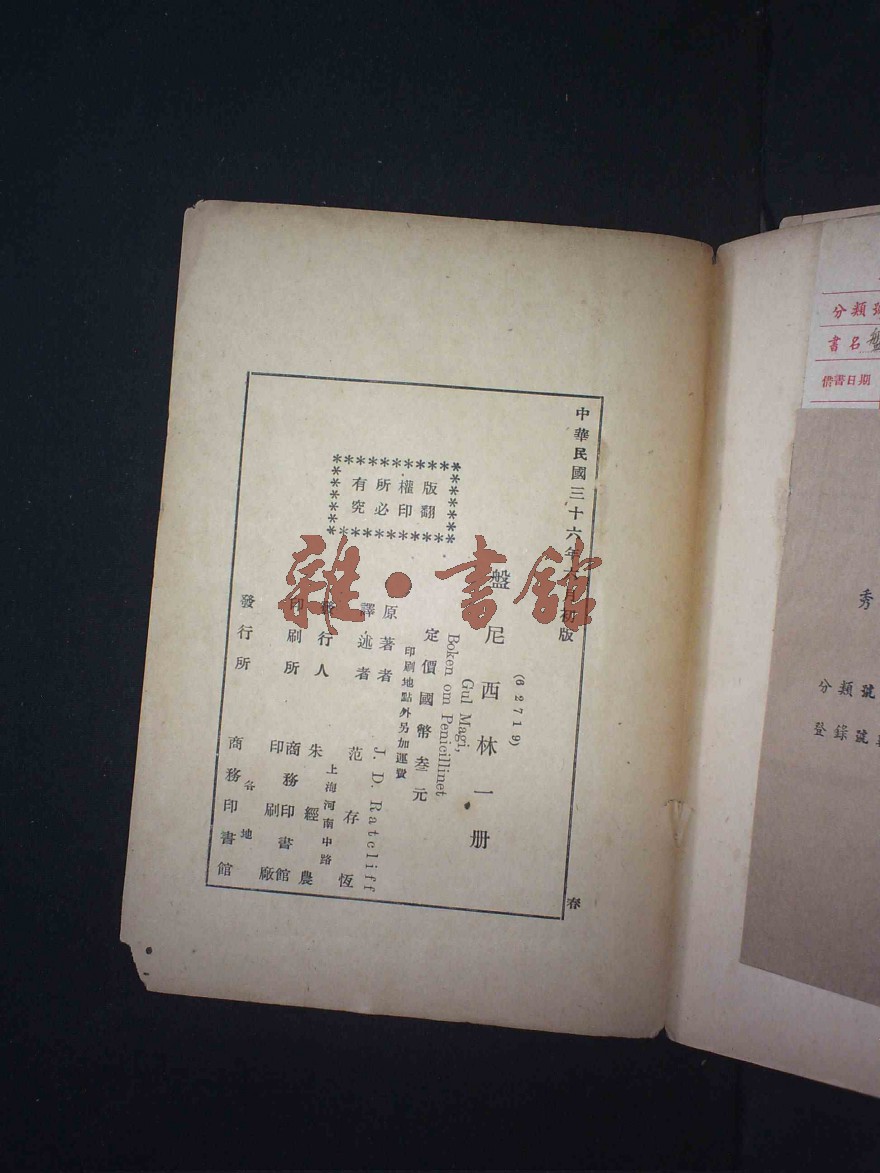 中華民國三十六年六月初版
(62719)
盤尼西林一册
Gul Magi,
Boken om Penicillinet
定價國幣叁元
印刷地點外另加運費
版權所有
翻印必究
原著者 J. D. Ratcliff
譯述者 范存恆
發行人 朱經農
上海河南中路
印刷所 商務印書館
印刷廠
發行所 各地
商務印書館
春
雜·書館
分類
書名
借書日期
秀
分類號
登錄號